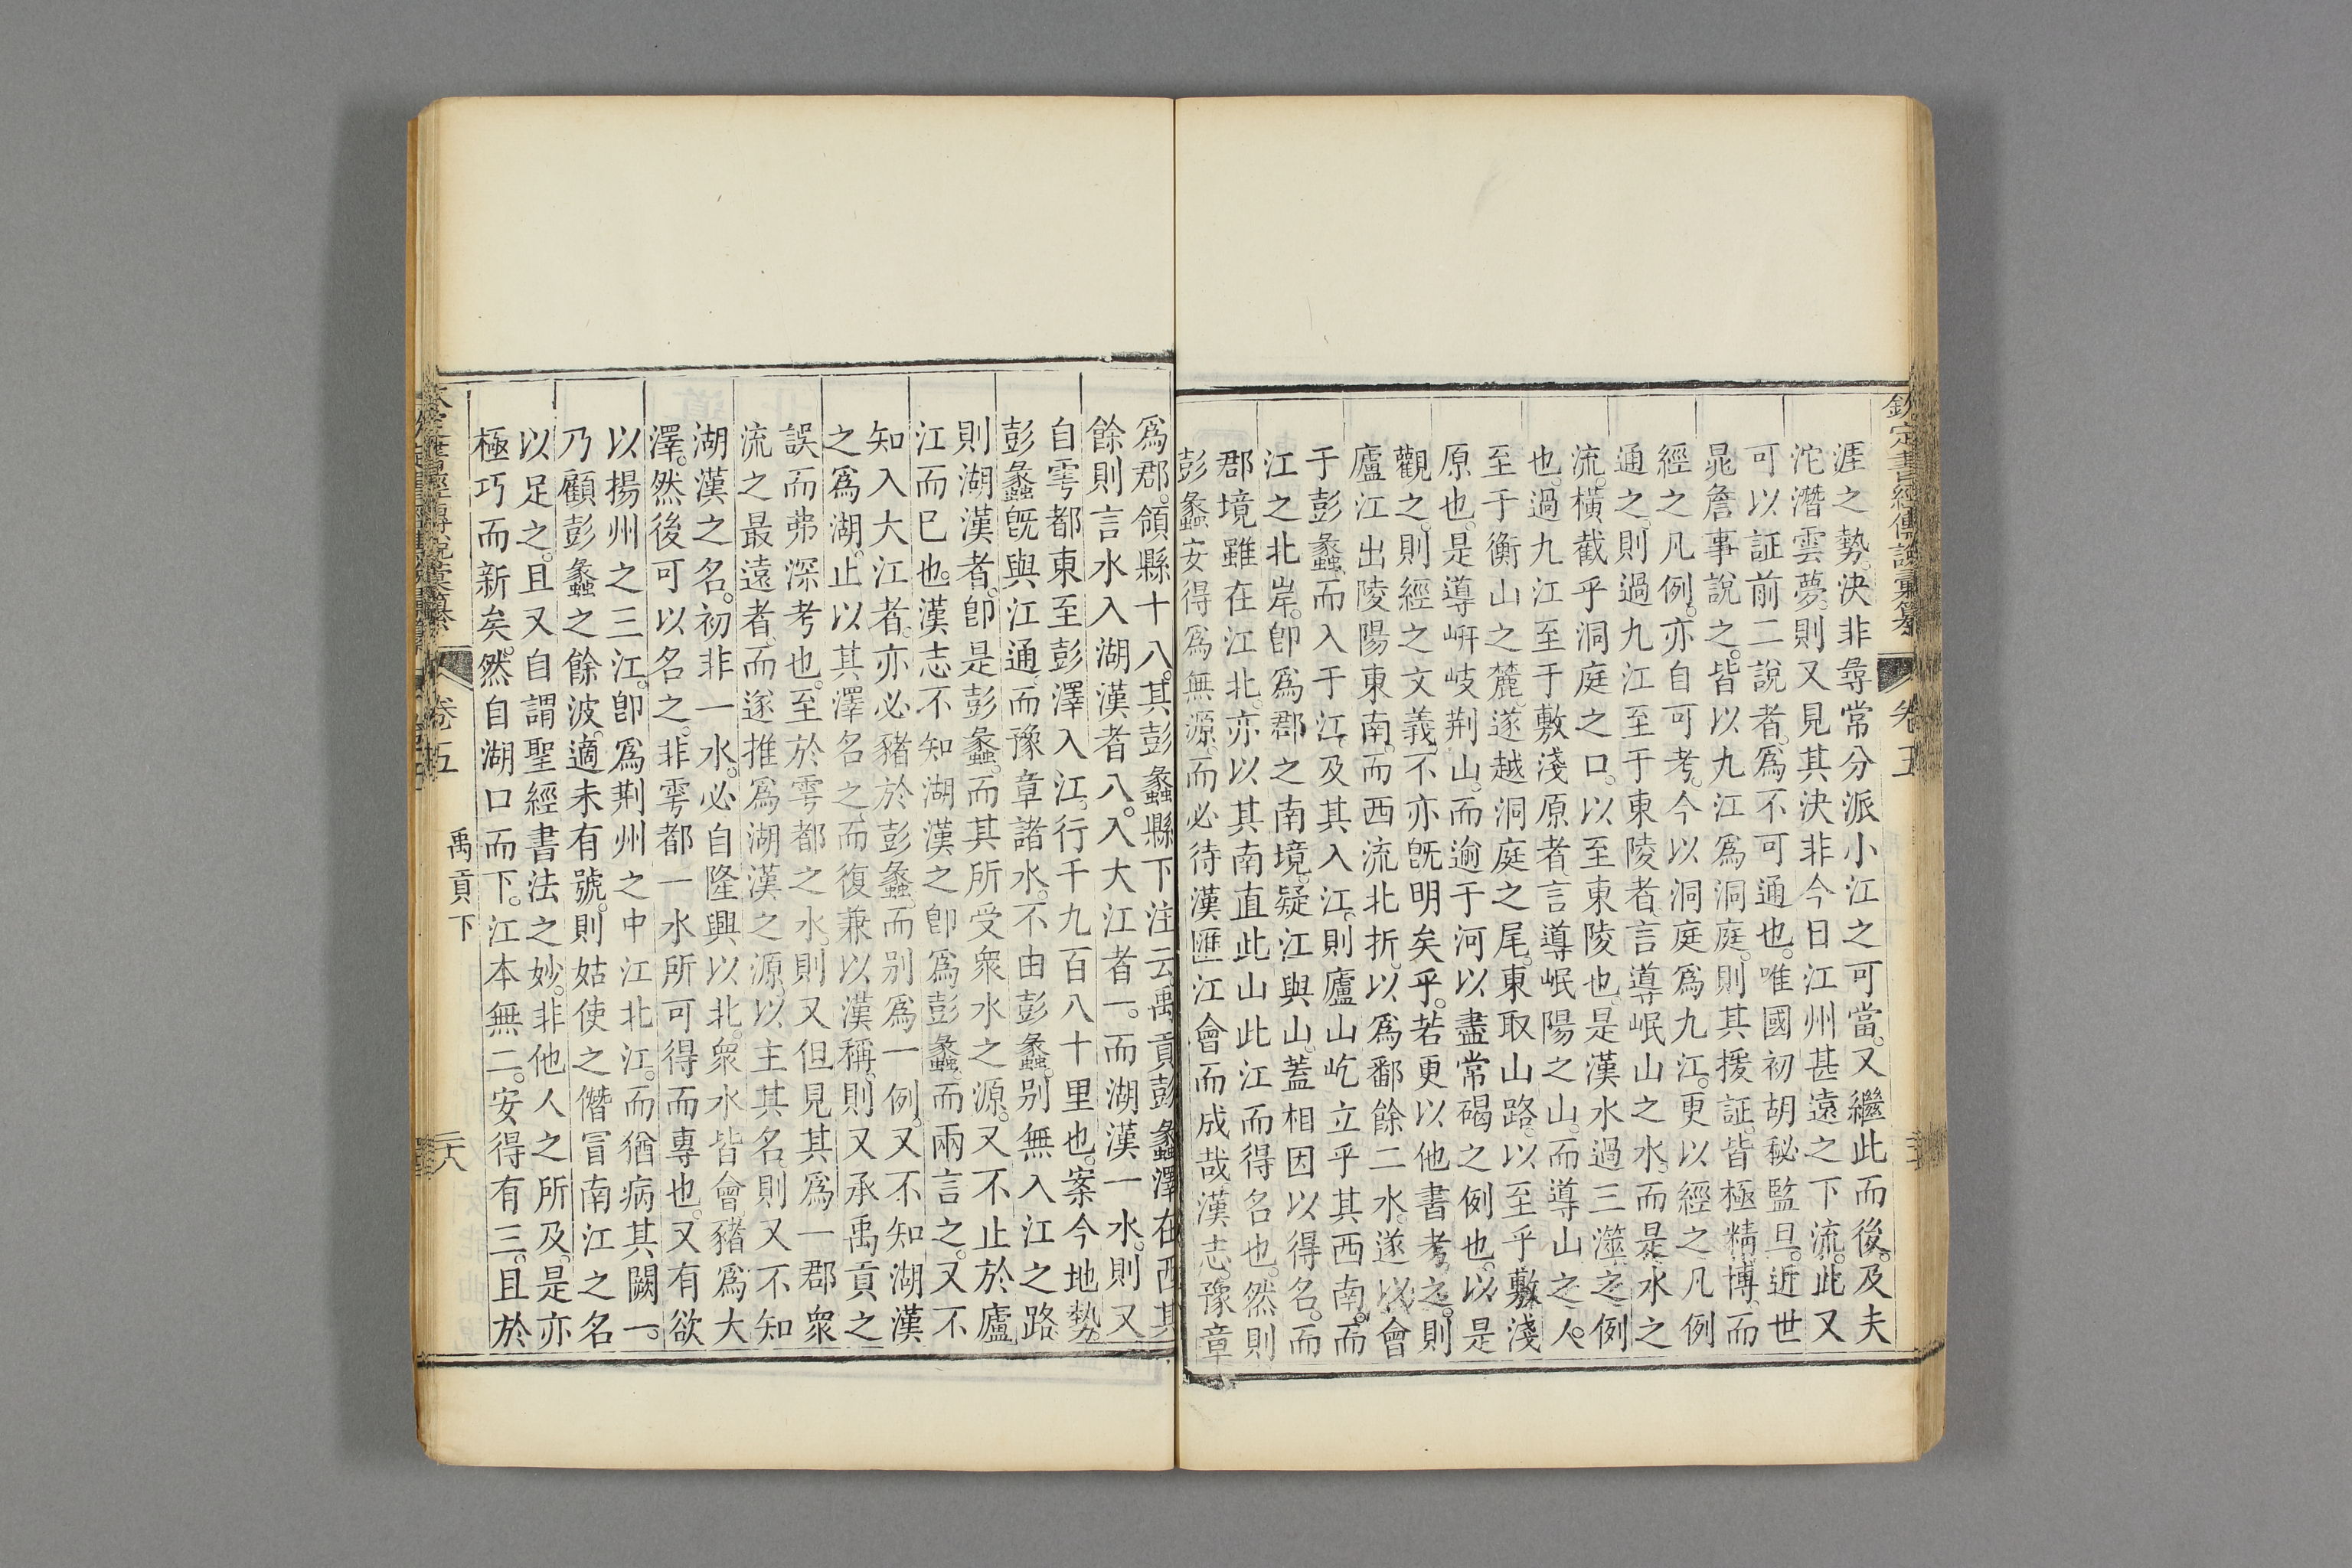 欽定書經傳說彙纂 卷五
涯之勢。決非尋常分派小江之可當。又繼此而後。及夫
沱潛雲夢。則又見其決非今日江州甚遠之下流。此又
可以証前二說者。爲不可通也。唯國初胡秘監旦。近世
晁詹事說之。皆以九江爲洞庭。則其援証。皆極精博。而
經之凡例。亦自可考。今以洞庭爲九江。更以經之凡例
通之。則過九江至于東陵者。言導岷山之水。而是水之
流。橫截乎洞庭之口。以至東陵也。是漢水過三澨之例
也。過九江至于敷淺原者。言導岷陽之山。而導山之人。
至于衡山之麓。遂越洞庭之尾。東取山路。以至乎敷淺
原也。是導岍岐荆山。而逾于河以盡常碣之例也。以是
觀之。則經之文義。不亦旣明矣乎。若更以他書考之。則
廬江出陵陽東南。而西流北折。以爲鄱餘二水。遂以會
于彭蠡。而入于江。及其入江。則廬山屹立乎其西南。而
江之北岸。卽爲郡之南境。疑江與山。蓋相因以得名。而
郡境雖在江北。亦以其南直此山此江而得名也。然則
彭蠡安得爲無源。而必待漢匯江會而成哉。漢志。豫章
爲郡。領縣十八。其彭蠡縣下注云。禹貢彭蠡澤在西。其
餘則言水入湖漢者八。入大江者一。而湖漢一水。則又
自雩都東至彭澤入江。行千九百八十里也。案今地勢。
彭蠡旣與江通。而豫章諸水。不由彭蠡。别無入江之路
則湖漢者。卽是彭蠡。而其所受衆水之源。又不止於廬
江而已也。漢志不知湖漢之卽爲彭蠡。而兩言之。又不
知入大江者。亦必豬於彭蠡。而别爲一例。又不知湖漢
之爲湖。止以其澤名之。而復兼以漢稱。則又承禹貢之
誤而弗深考也。至於雩都之水。則又但見其爲一郡衆
流之最遠者。而遂推爲湖漢之源。以主其名。則又不知
湖漢之名。初非一水。必自隆興以北。衆水皆會。豬爲大
澤。然後可以名之。非雩都一水所可得而專也。又有欲
以揚州之三江。卽爲荆州之中江北江。而猶病其闕一。
乃顧彭蠡之餘波。適未有號。則姑使之僭冒南江之名
以足之。且又自謂聖經書法之妙。非他人之所及。是亦
極巧而新矣。然自湖口而下。江本無二。安得有三。且於
卷五 禹貢下 二十八